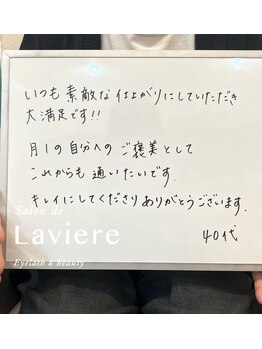 いつも素敵な仕上がりにしていただき
大満足です!!
月1の自分へのご褒美として
これからも通いたいです。
キレイにしてくださりありがとうございます。
40代
Salon de
Laviere
Eyelash & beauty